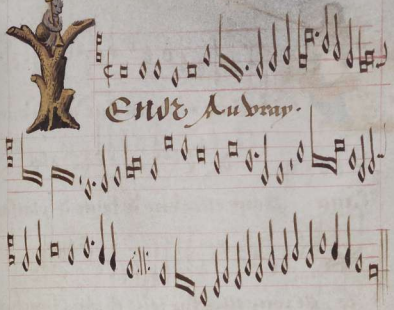 Tenor Au vray.